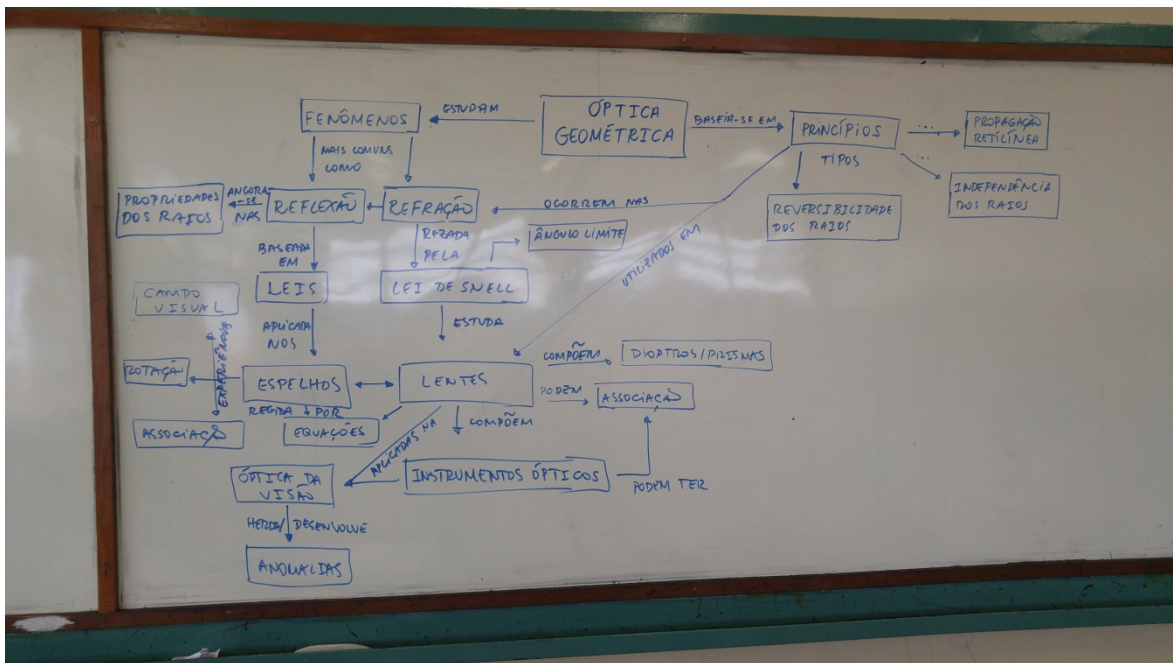 ÓPTICA
GEOMÉTRICA
ESTUDAM
FENÔMENOS
BASEIA-SE EM
PRINCÍPIOS
...
PROPAGAÇÃO
RETILÍNEA
TIPOS
...
INDEPENDÊNCIA
DOS RAIOS
REVERSIBILIDADE
DOS RAIOS
MAIS COMUNS
COMO
REFLEXÃO
REFRAÇÃO
OCORREM NAS
ANCORA
-SE
NAS
PROPRIEDADES
DOS RAIOS
BASEADA
EM
LEIS
REZADA
PELA
LEI DE SNELL
ÂNGULO LIMITE
UTILIZADOS EM
APLICADA
NOS
ESTUDA
CAMPO
VISUAL
ROTAÇÃO
ASSOCIAÇÃO
ESPELHOS
LENTES
COMPÕEM
DIOPTROS/PRISMAS
PODEM
ASSOCIAÇÃO
REGIDA POR
EQUAÇÕES
APLICADAS NA
COMPÕEM
INSTRUMENTOS ÓPTICOS
PODEM TER
ÓPTICA DA
VISÃO
HERDA/DESENVOLVE
ANOMALIAS